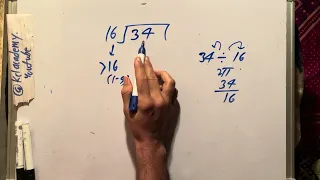 16 ) 34 (
34 ÷ 16
>16
या
(1-9)
34
16
@Kclacademy
Youtube